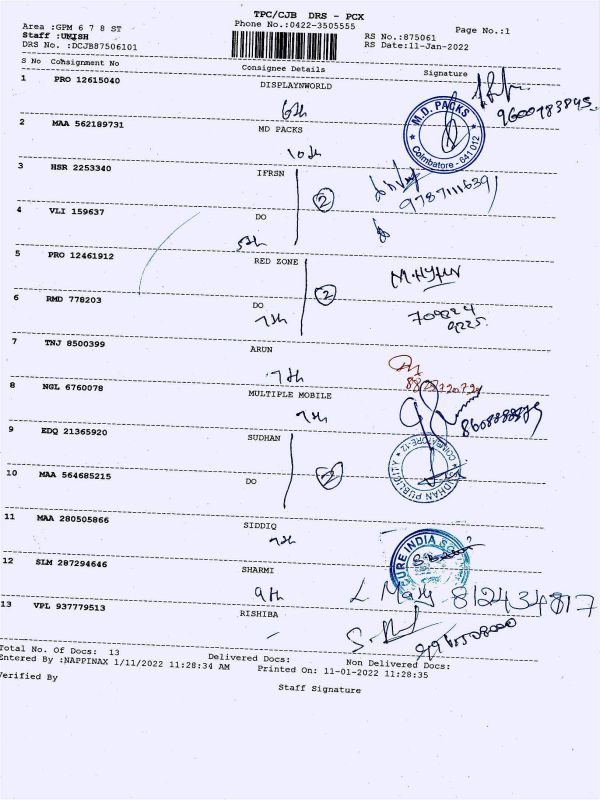 TPC/CJB DRS - PCX
Area :GPM 6 7 8 ST Phone No.:0422-3505555 Page No.:1
Staff :UKISH RS No.:875061
DRS No. :DCJB87506101 RS Date:11-Jan-2022
S No Consignment No Consignee Details Signature
1 PRO 12615040 DISPLAYNWORLD
6th
9600783845
2 MAA 562189731 MD PACKS
M.D. PACKS
Coimbatore - 641 012
10th
3 HSR 2253340 IFRSN
2
9787111639
4 VLI 159637 DO
5th
5 PRO 12461912 RED ZONE
2
6 RMD 778203 DO
709224
0225
7th
7 TNJ 8500399 ARUN
7th
8 NGL 6760078 MULTIPLE MOBILE
7th
9 EDQ 21365920 SUDHAN
SUDHAN PUBLICITY
COIMBATORE-12
2
10 MAA 564685215 DO
11 MAA 280505866 SIDDIQ
7th
12 SLM 287294646 SHARMI
9th
L Mary 812434817
13 VPL 937779513 RISHIBA
Total No. Of Docs: 13 Delivered Docs: Non Delivered Docs:
Entered By :NAPPINAX 1/11/2022 11:28:34 AM Printed On: 11-01-2022 11:28:35
Verified By Staff Signature